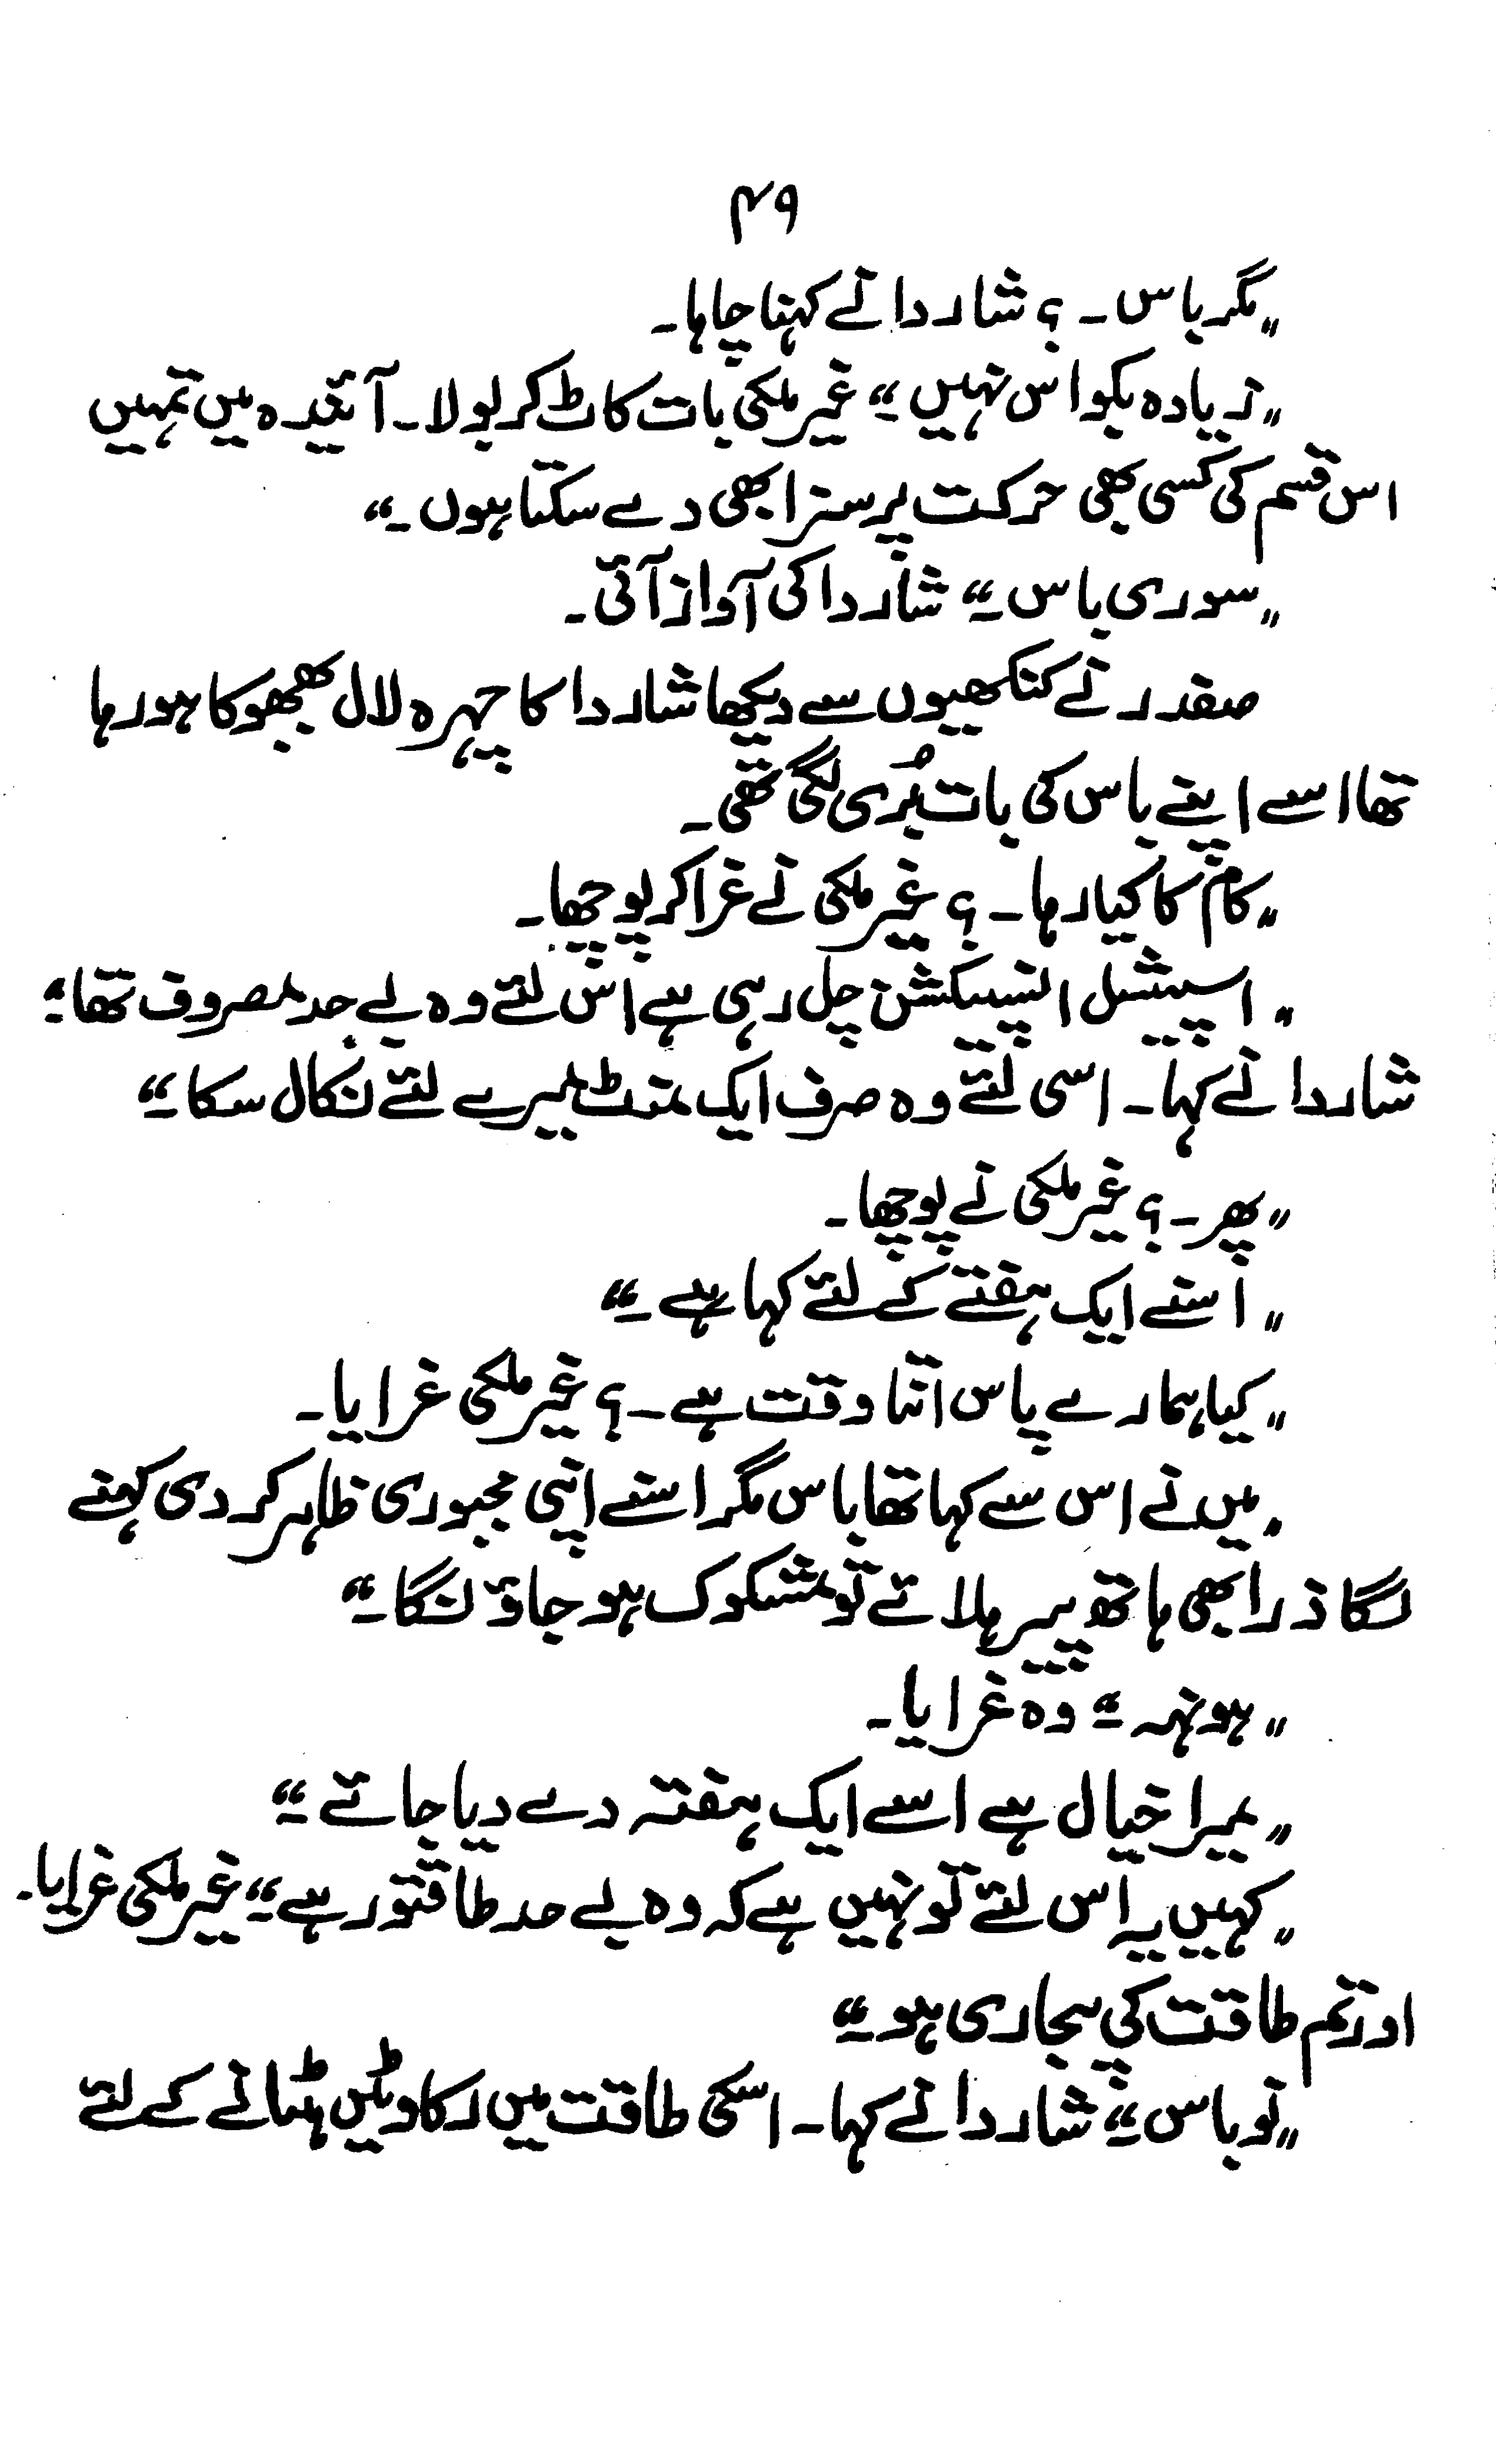 ۴۹
"مگر باس۔؟ شاردا نے کہنا چاہا۔
"زیادہ بکواس نہیں" غیر ملکی بات کاٹ کر بولا۔ آئیندہ میں تمہیں
اس قسم کی کسی بھی حرکت پر سزا بھی دے سکتا ہوں۔"
"سوری باس۔" شاردا کی آواز آئی۔
صفدر نے کنکھیوں سے دیکھا شاردا کا چہرہ لال بھبھوکا ہو رہا
تھا اسے اپنے باس کی بات بُری لگی تھی۔
"کام کا کیا رہا۔؟ غیر ملکی نے غرا کر پوچھا۔
"اسپیشل انسپکشن چل رہی ہے اس لئے وہ بے حد مصروف تھا۔"
شاردا نے کہا۔ اسی لئے وہ صرف ایک منٹ میرے لئے نکال سکا۔"
"پھر۔؟ غیر ملکی نے پوچھا۔
"اسنے ایک ہفتے کے لئے کہا ہے۔"
"کیا ہمارے پاس اتنا وقت ہے۔؟ غیر ملکی غرایا۔
"میں نے اس سے کہا تھا باس مگر اسنے اپنی مجبوری ظاہر کر دی کہنے
لگا ذرا بھی ہاتھ پیر ہلائے تو مشکوک ہو جاؤنگا۔"
"ہونہہ۔" وہ غرایا۔
"میرا خیال ہے اسے ایک ہفتہ دے دیا جائے۔"
"کہیں یہ اس لئے تو نہیں ہے کہ وہ بے حد طاقتور ہے۔" غیر ملکی غرایا۔
اور تم طاقت کی پجاری ہو۔"
"نو باس۔" شاردا نے کہا۔ اسکی طاقت میں رکاوٹیں ہٹانے کے لئے